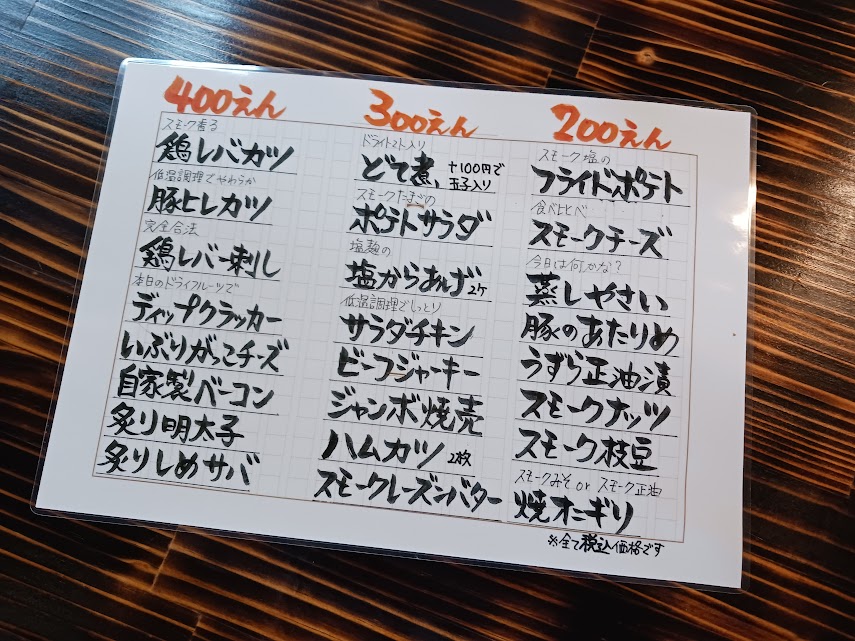 400えん
スモーク香る
鶏レバカツ
低温調理でやわらか
豚ヒレカツ
完全合法
鶏レバー刺し
本日のドライフルーツで
ディップクラッカー
いぶりがっこチーズ
自家製ベーコン
炙り明太子
炙りしめサバ
300えん
ドライトマト入り
どて煮、+100円で
玉子入り
スモークたまごの
ポテトサラダ
塩麹の
塩からあげ 2ケ
低温調理でしっとり
サラダチキン
ビーフジャーキー
ジャンボ焼売
ハムカツ 2枚
スモークレーズンバター
200えん
スモーク塩の
フライドポテト
食べ比べ
スモークチーズ
今日は何かな?
蒸しやさい
豚のあたりめ
うずら正油漬
スモークナッツ
スモーク枝豆
スモークみそ or スモーク正油
焼オニギリ
※全て税込価格です